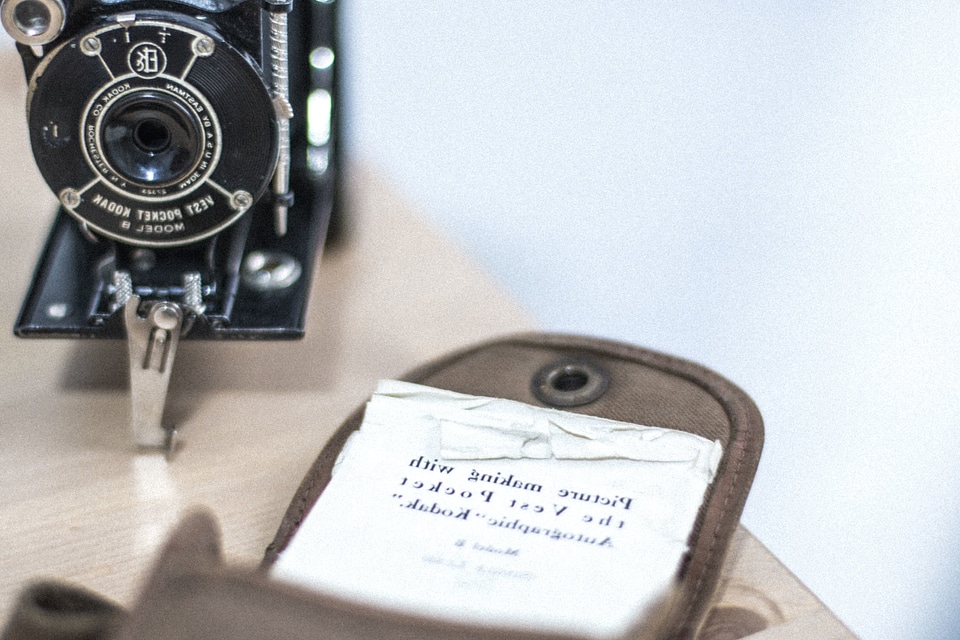 EKC
MADE IN U S A BY EASTMAN KODAK CO ROCHESTER N Y
VEST POCKET KODAK
MODEL B
Picture making with
the Vest Pocket
Autographic "Kodak."
Model B